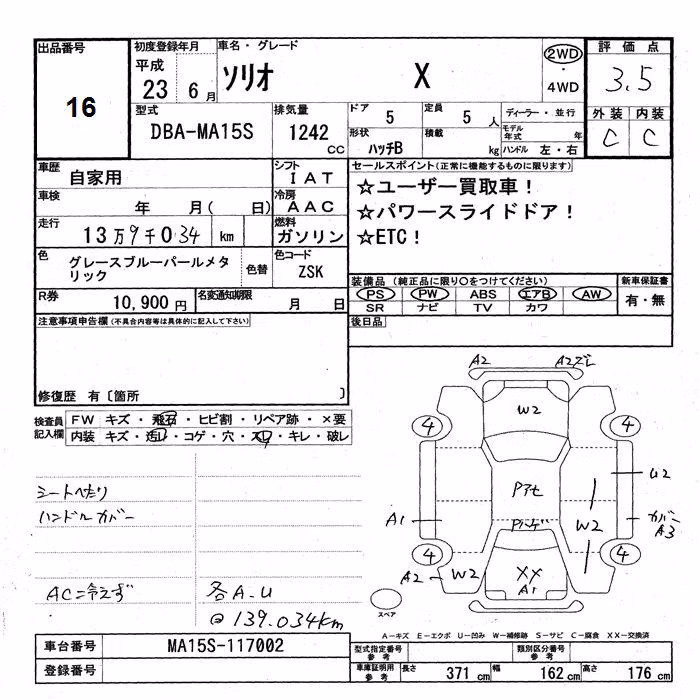 出品番号 16
初度登録年月 平成 23年 6月
車名・グレード ソリオ X
2WD・4WD
評価点 3.5
型式 DBA-MA15S
排気量 1242 CC
ドア 5
定員 5 人
ディーラー・並行
外装 C 内装 C
形状 ハッチB
積載 kg
モデル年式 年
ハンドル 左・右
車歴 自家用
シフト IAT
車検 年 月( 日)
冷房 AAC
走行 13万9千034 km
燃料 ガソリン
色 グレースブルーパールメタリック
色替
色コード ZSK
R券 10,900円
名変通知期限 月 日
セールスポイント(正常に機能するものに限ります)
☆ユーザー買取車!
☆パワースライドドア!
☆ETC!
装備品 (純正品に限り○をつけてください)
新車保証書
PS PW ABS エアB AW
SR ナビ TV カワ
有・無
後日品
注意事項申告欄(不具合内容等は具体的に記入して下さい)
修復歴 有〔箇所 〕
検査員記入欄
FW キズ・飛石・ヒビ割・リペア跡・×要
内装 キズ・汚レ・コゲ・穴・スレ・キレ・破レ
シートへたり
ハンドルカバー
AC=冷えず
各A.U
@139.034km
A2 A2ズレ
W2
4 4
Pアセ
U2
A1
W2
カバーA3
4 4
A2 W2
XX
A1
スペア
A—キズ E—エクボ U—凹み W—補修跡 S—サビ C—腐食 XX—交換済
車台番号 MA15S-117002
登録番号
型式指定番号 参考
類別区分番号 参考
車庫証明用 参考
長さ 371 cm 幅 162 cm 高さ 176 cm